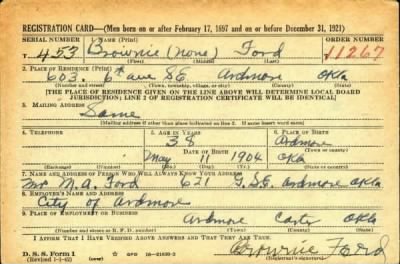 REGISTRATION CARD—(Men born on or after February 17, 1897 and on or before December 31, 1921)
SERIAL NUMBER 1. NAME (Print) ORDER NUMBER
T 453 Brownie (none) Ford 11267
(First) (Middle) (Last)
2. PLACE OF RESIDENCE (Print)
603. 6th ave SE Ardmore Okla
(Number and street) (Town, township, village, or city) (County) (State)
[THE PLACE OF RESIDENCE GIVEN ON THE LINE ABOVE WILL DETERMINE LOCAL BOARD
JURISDICTION; LINE 2 OF REGISTRATION CERTIFICATE WILL BE IDENTICAL]
3. MAILING ADDRESS
Same
[Mailing address if other than place indicated on line 2. If same insert word same]
4. TELEPHONE 5. AGE IN YEARS 6. PLACE OF BIRTH
38 Ardmore
DATE OF BIRTH (Town or county)
May 11 1904 Okla
(Exchange) (Number) (Mo.) (Day) (Yr.) (State or country)
7. NAME AND ADDRESS OF PERSON WHO WILL ALWAYS KNOW YOUR ADDRESS
Mr. M. A. Ford 621 SE Ardmore Okla
8. EMPLOYER'S NAME AND ADDRESS
City of Ardmore
9. PLACE OF EMPLOYMENT OR BUSINESS
Ardmore Carter Okla
(Number and street or R. F. D. number) (Town) (County) (State)
I AFFIRM THAT I HAVE VERIFIED ABOVE ANSWERS AND THAT THEY ARE TRUE.
D. S. S. Form 1 GPO 16—21630-2 Brownie Ford
(Revised 1-1-42) (over)